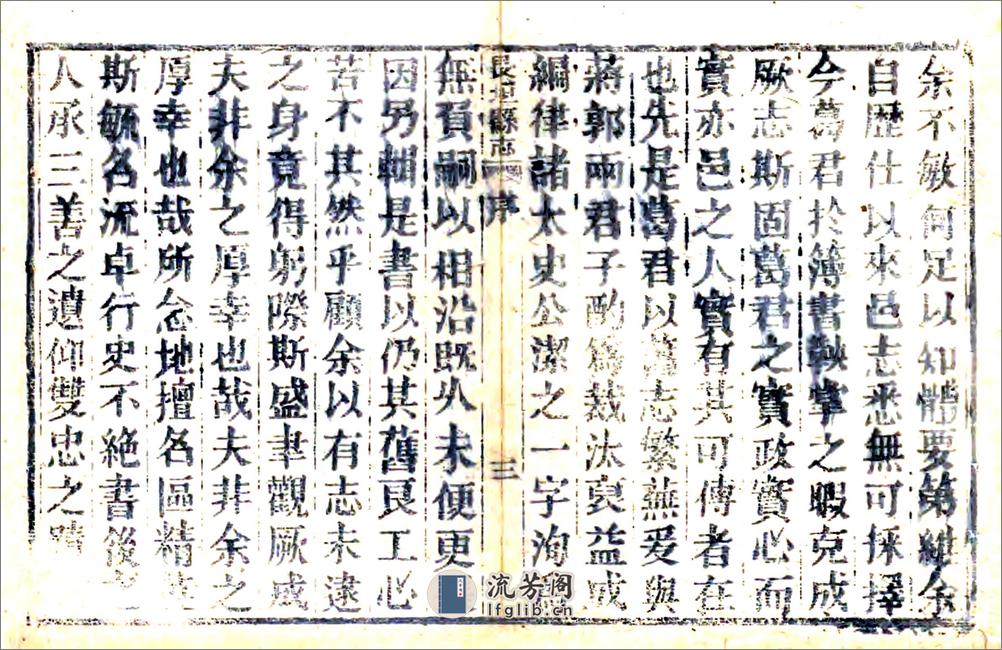 余不敏何足以知體要第維余
自歷仕以來邑志悉無可採擇
今葛君於簿書鞅掌之暇克成
厥志斯固葛君之實政實心而
實亦邑之人實有其可傳者在
也先是葛君以舊志繁蕪爰與
蔣郭兩君子酌為裁汰裒益成
編律諸太史公潔之一字洵
長垣縣志 序 三
無負嗣以相沿既久未便更
因另輯是書以仍其舊良工心
苦不其然乎顧余以有志未逮
之身竟得躬際斯盛聿觀厥成
夫非余之厚幸也哉夫非余之
厚幸也哉所念地擅名區精
斯毓名流卓行史不絕書後之
人承三善之遺仰雙忠之蹟